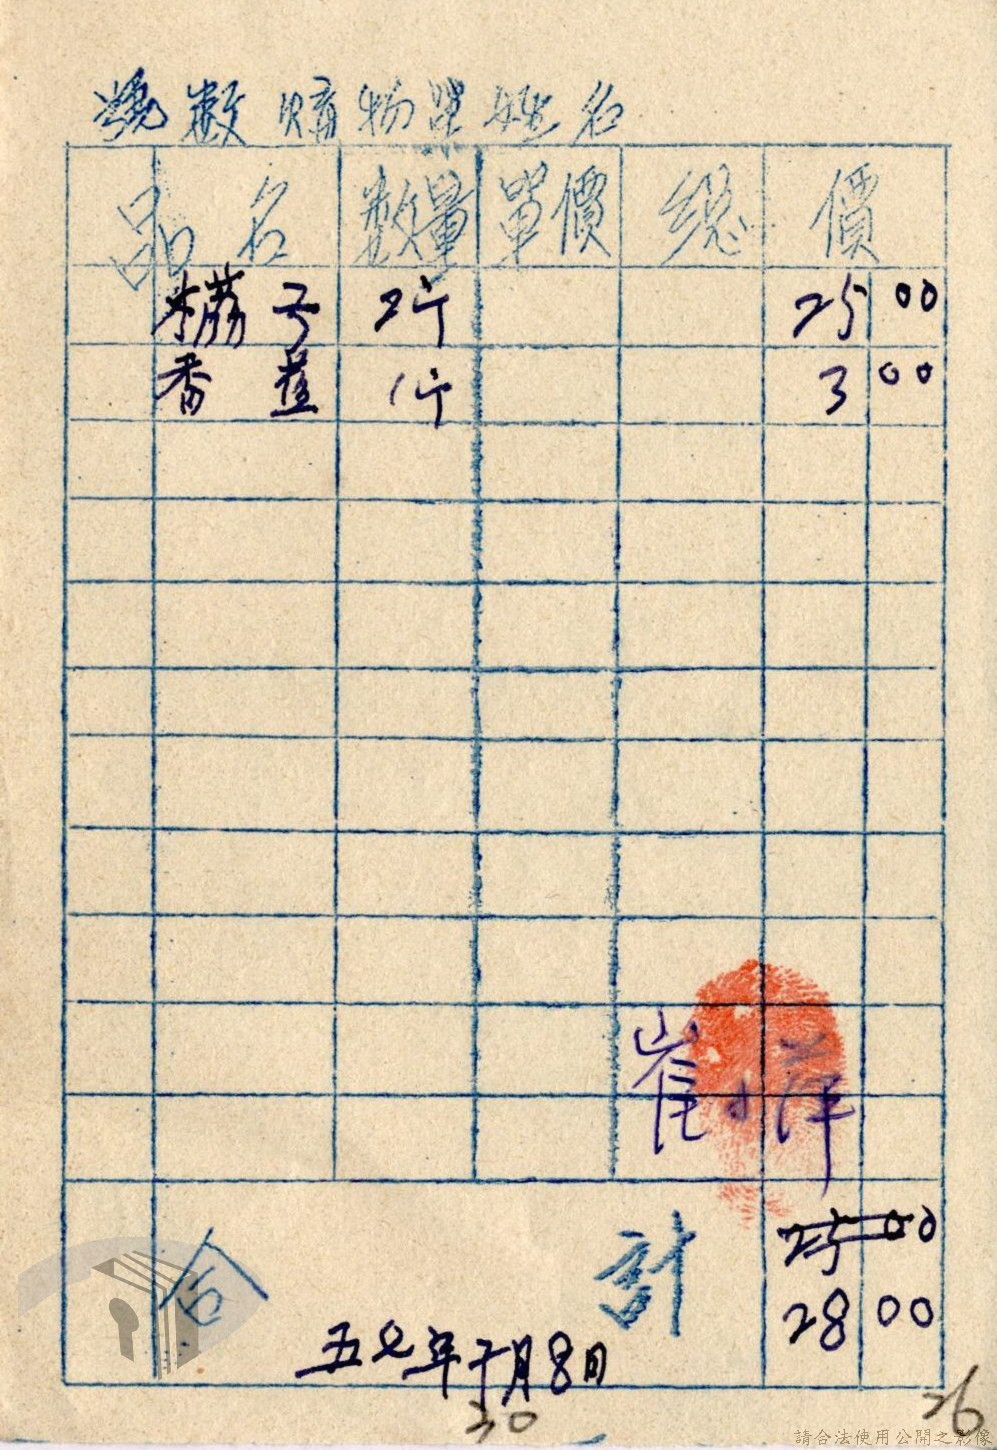 號數 購物單姓名
品名 數量 單價 總價
荔子 2斤 25 00
香蕉 1斤 3 00
崔小萍
合計 25 00
28 00
五七年 月8日
30
26
請合法使用公開之影像